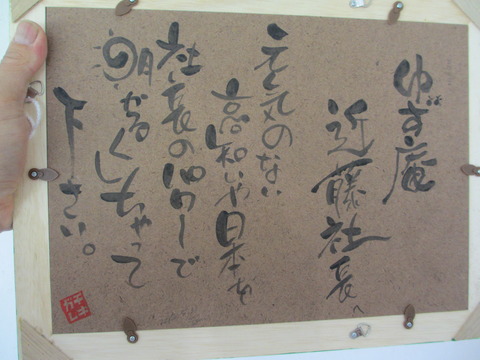 ゆず庵
近藤社長へ
元気のない
高知いや日本を
社長のパワーで
明かるくしちゃって
下さい。